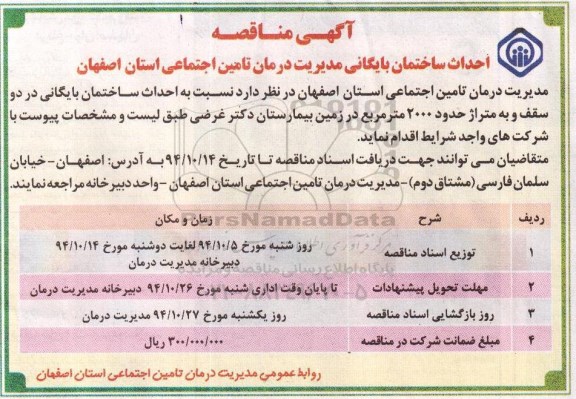 آگهی مناقصه
احداث ساختمان بایگانی مدیریت درمان تامین اجتماعی استان اصفهان
مدیریت درمان تامین اجتماعی استان اصفهان در نظر دارد نسبت به احداث ساختمان بایگانی در دو
سقف و به متراژ حدود ۲۰۰۰ مترمربع در زمین بیمارستان دکتر غرضی طبق لیست و مشخصات پیوست با
شرکت های واجد شرایط اقدام نماید.
متقاضیان می توانند جهت دریافت اسناد مناقصه تا تاریخ ۹۴/۱۰/۱۴ به آدرس: اصفهان - خیابان
سلمان فارسی (مشتاق دوم) - مدیریت درمان تامین اجتماعی استان اصفهان - واحد دبیرخانه مراجعه نمایند.
ردیف شرح زمان و مکان
۱ توزیع اسناد مناقصه روز شنبه مورخ ۹۴/۱۰/۵ لغایت دوشنبه مورخ ۹۴/۱۰/۱۴
دبیرخانه مدیریت درمان
۲ مهلت تحویل پیشنهادات تا پایان وقت اداری شنبه مورخ ۹۴/۱۰/۲۶ دبیرخانه مدیریت درمان
۳ روز بازگشایی اسناد مناقصه روز یکشنبه مورخ ۹۴/۱۰/۲۷ مدیریت درمان
۴ مبلغ ضمانت شرکت در مناقصه ۳۰۰/۰۰۰/۰۰۰ ریال
ParsNamadData
پایگاه اطلاع رسانی مناقصه و مزایده
روابط عمومی مدیریت درمان تامین اجتماعی استان اصفهان